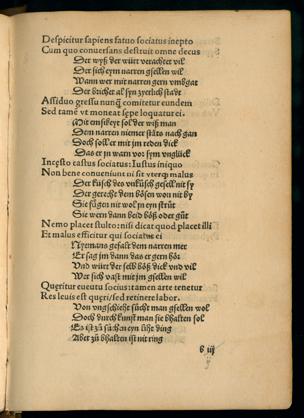 Despicitur sapiens fatuo sociatus inepto
Cum quo conuersans destruit omne decus
Der wyß der würt verachtet vil
Der sich eym narren gsellen wil
Wann wer mit narren gern vmbgat
Der brichet al syn zyerlich stadt
Assiduo gressu nunq̃ comitetur eundem
Sed tamẽ vt moneat sępe loquatur ei.
Mit emsikeyt sol der wiß man
Dem narren niemer stäts nach gan
Doch soll er mit jm reden dick
Das er jn warn vor sym vnglück
Incęsto castus sociatus: Iustus iniquo
Non bene conueniunt ni sit vterq; malus
Der küsch des vnküsch gesell nit sy
Der gerecht dem bösen won nit by
Sie fügen nit wol jn eyn strüt
Sie wern dann beid böß oder güt
Nemo placet stulto: nisi dicat quod placet illi
Et malus efficitur qui sociatur ei
Nyemans gefalt dem narren mer
Et sag jm dann das er gern hör
Vnd würt der selb böß dick vnd vil
Wer sich vast mit jm gsellen wil
Quęritur eueutu socius: tamen arte tenetur
Res leuis est quęri/ sed retinere labor.
Von vngschieht sücht man gsellen wol
Doch durch kunst man sie bhalten sol
Es ist zü süchen eyn liht ding
Aber zü bhalten ist nit ring
b iij